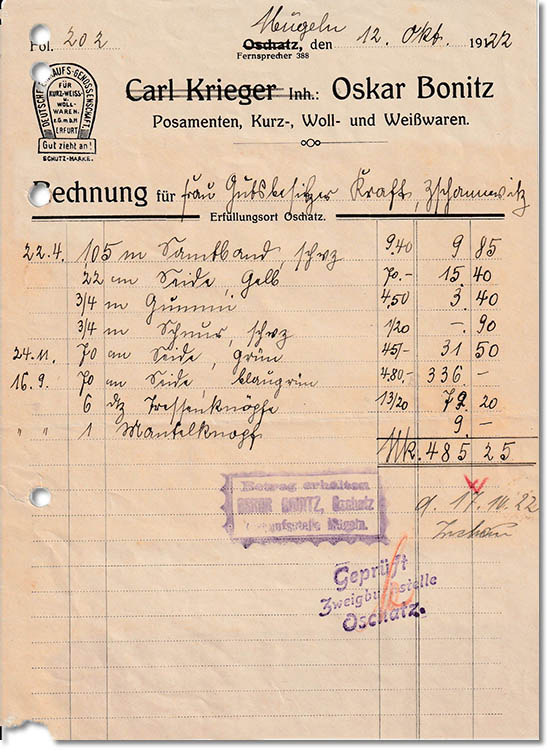 Mügeln
Fol. 202 Oschatz, den 12. Okt. 19122
Fernsprecher 388
DEUTSCHE EINKAUFS-GENOSSENSCHAFT
FÜR
KURZ-WEISS-
u. WOLL-
WAREN.
e.G.m.b.H
ERFURT
Gut zieht an!
SCHUTZ-MARKE.
Carl Krieger Inh.: Oskar Bonitz
Posamenten, Kurz-, Woll- und Weißwaren.
Rechnung für Frau Gutsbesitzer Kraft, Zschannewitz
Erfüllungsort Oschatz.
22.4. 1,05 m Samtband, schwz 9.40 9 85
22 cm Seide, Gelb 70.- 15 40
3/4 m Gummi 4,50 3 40
3/4 m Schnur, schwz 1/20 -. 90
24.11. 70 cm Seide, grün 45/- 31 50
16.9. 70 cm Seide, blaugrün 4.80,- 336 -
6 dtz Tressenknöpfe 13/20 79 20
" " 1 Mantelknopf 9. -
Mk. 485 25
Betrag erhalten
OSKAR BONITZ, Oschatz
Verkaufsstelle Mügeln.
d. 17.10.22
Geprüft
Zweigbuchstelle
Oschatz.